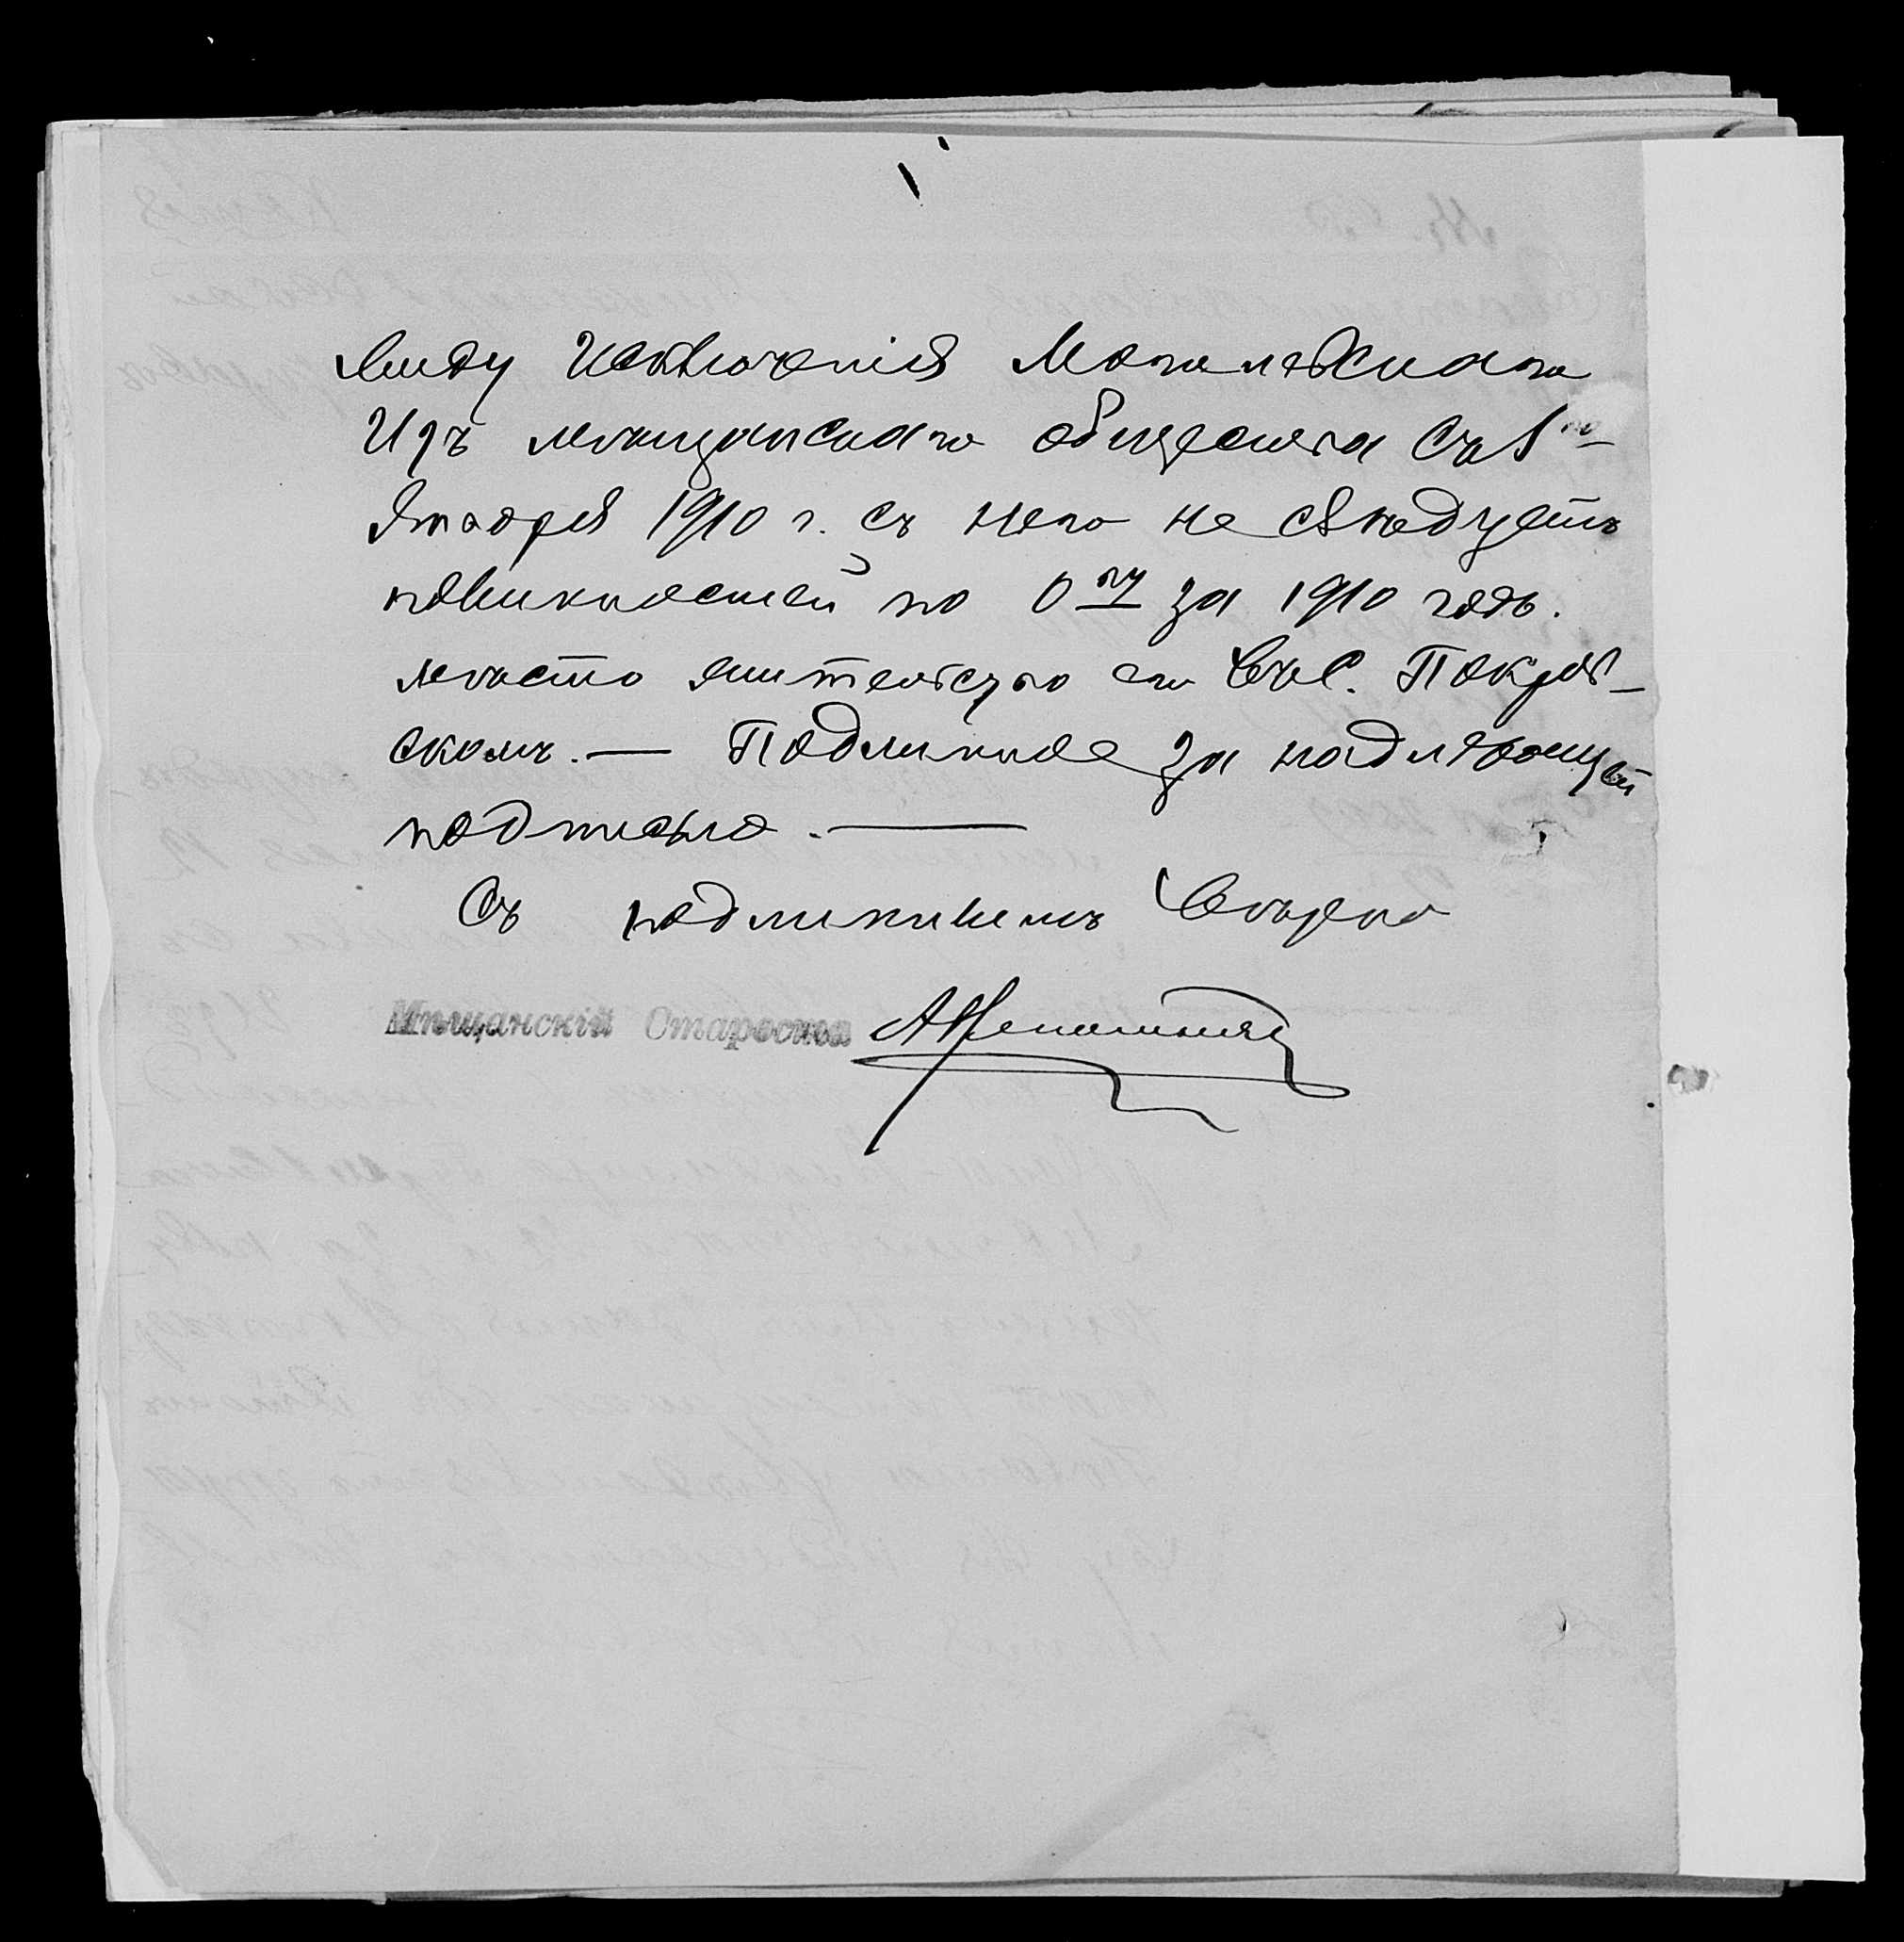 Ввиду исключенія Могилевскаго
Изъ мѣщанскаго общества Съ 1го
Января 1910 г. съ него не слѣдуетъ
повинностей по О ву за 1910 годъ.
мѣсто жительство его въ с. Покров-
скомъ. — Подлинное за надлежащей
подписью. —
Съ подлиннымъ Вѣрно
Мѣщанскій Староста